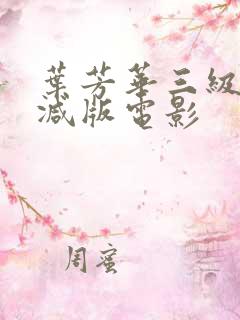 葉芳華三級
减版電影
周蜜